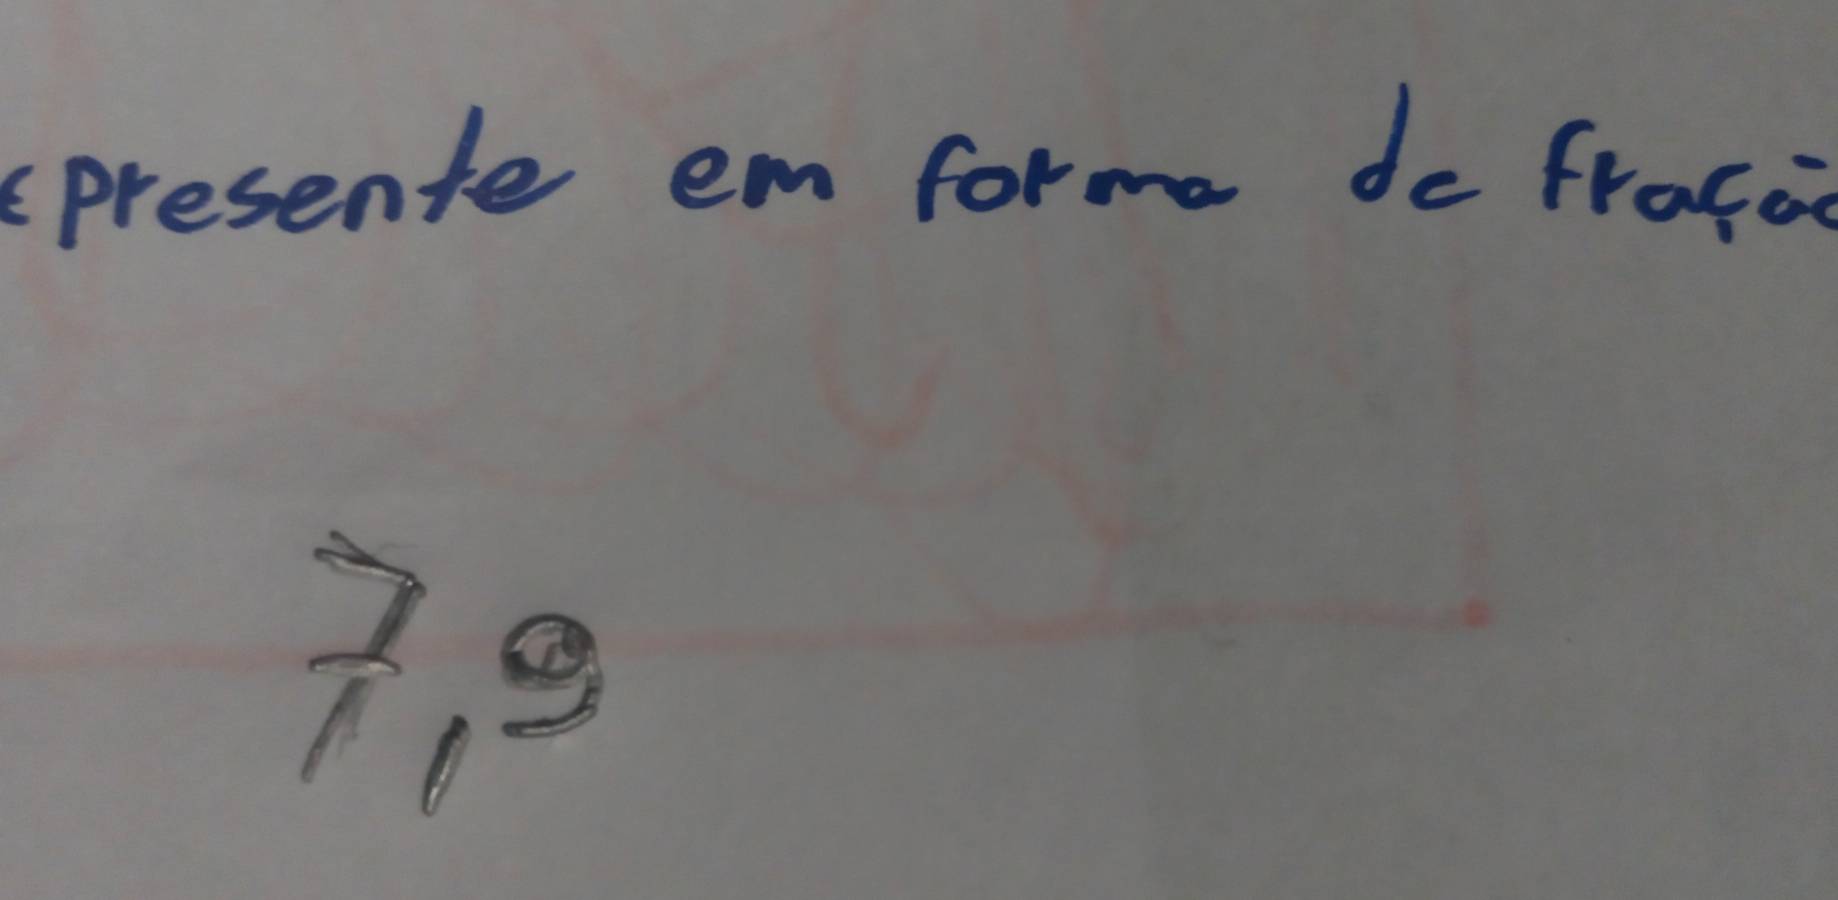 epresente em forma de fração
7,9